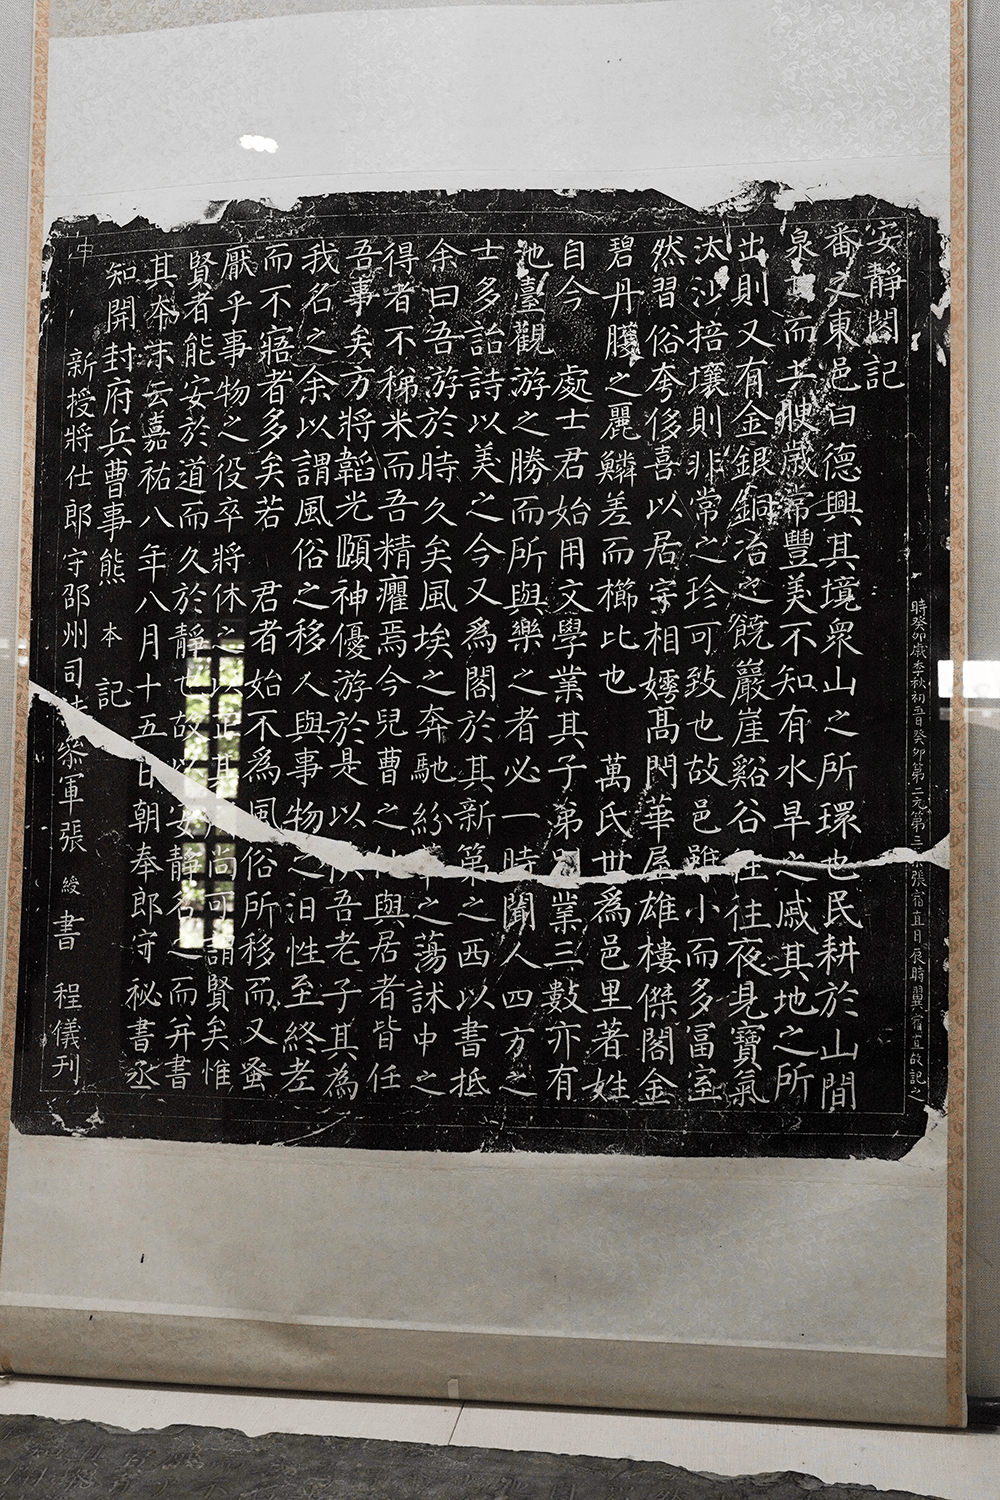 時癸卯歲季秋初五日癸卯第二元第三 張宿直日辰時翼宿直故記之
安靜閣記
番之東邑曰德興其境衆山之所環也民耕於山間
泉 而土腴歲常豐美不知有水旱之戚其地之所
出則又有金銀銅冶之饒巖崖谿谷往往夜見寶氣
汰沙掊壤則非常之珍可致也故邑雖小而多富室
然習俗夸侈喜以居宇相嫮高閈華屋雄樓傑閣金
碧丹雘之麗鱗差而櫛比也 萬氏世為邑里著姓
自今 處士君始用文學業其子弟別業三數亦有
池臺觀游之勝而所與樂之者必一時聞人四方之
士多詒詩以美之今又為閣於其新第之西以書抵
余曰吾游於時久矣風埃之奔馳紛 之蕩訹中之
得者不稊米而吾精癯焉今兒曹之 與居者皆任
吾事矣方將韜光頤神優游於是以 吾老子其為
我名之余以謂風俗之移人與事物之汩性至終耄
而不寤者多矣若 君者始不為風俗所移而又蚤
厭乎事物之役卒將休之以 其 尚可謂賢矣惟
賢者能安於道而久於靜也故 安靜名之而并書
其本末云嘉祐八年八月十五日朝奉郎守祕書丞
知開封府兵曹事熊 本 記
新授將仕郎守邵州司 參軍張 綬 書 程儀刊